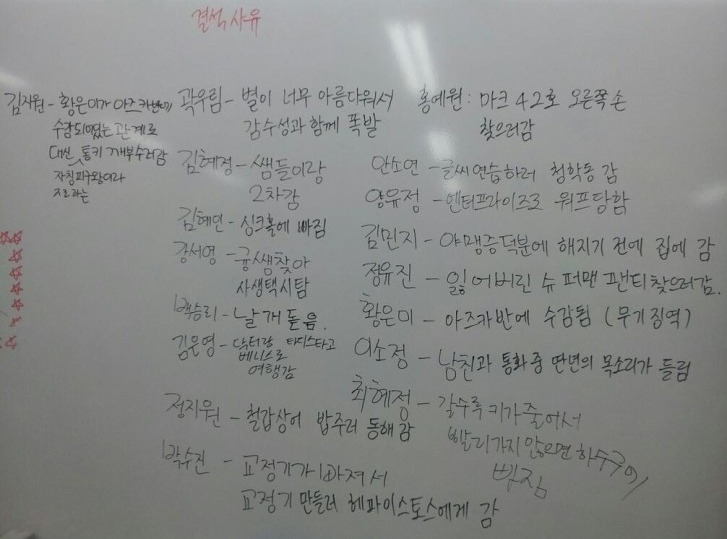 결석사유
김지원 - 황은미가 아즈카반에
수감되어있는 관계로
대신 퉁키 깨부수러감
자칭피구왕이라
지르라는
곽우림 - 별이 너무 아름다워서
감수성과 함께 폭발
김혜정 - 쌤들이랑
2차감
김혜민 - 싱크홀에 빠짐
강서영 - 귱쌤찾아
사생택시탐
백승리 - 날개 돋음.
김은영 - 닥터랑 타디스타고
베니스로
여행감
정지원 - 철갑상어 밥주러 동해감
박수진 - 교정기가 빠져서
교정기 만들러 헤파이스토스에게 감
홍예원 : 마크 42호 오른쪽 손
찾으러감
안소연 - 글씨연습하러 청학동 감
양유정 - 엔터프라이즈로 워프당함
김민지 - 야맹증덕분에 해지기 전에 집에 감
정유진 - 잃어버린 슈퍼맨 팬티찾으러감.
황은미 - 아즈카반에 수감됨 (무기징역)
이소정 - 남친과 통화중 딴년의 목소리가 들림
최혜정 - 갈수록 키가 줄어서
빨리가지 않으면 하수구에
빠짐